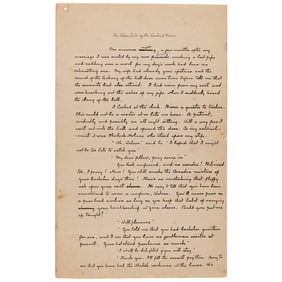 The Adventure of the Crooked Man
One summer evening, a few months after my
marriage I was seated by my own fireside smoking a last pipe
and nodding over a novel for my day's work had been an
exhausting one. My wife had already gone upstairs and the
sound of the locking of the hall door some time before told me that
the servants had also retired. I had risen from my seat and
was knocking out the ashes of my pipe when I suddenly heard the
clang of the bell.
I looked at the clock. It was a quarter to twelve.
This could not be a visitor at so late an hour. A patient,
evidently and possibly an all night sitting. With a wry face I
went out into the hall and opened the door. To my astonish-
ment it was Sherlock Holmes who stood upon my step.
"Ah, Watson" said he "I hoped that I might
not be too late to catch you"
"My dear fellow, pray come in"
"You look surprised, and no wonder! Relieved
too, I fancy! Hum! You still smoke the Arcadia mixture of
your bachelor days then! There's no mistaking that fluffy
ash upon your coat. It's easy to tell that you have been
accustomed to wear a uniform, Watson. You'll never pass as
a pure bred civilian as long as you keep that habit of carrying
your handkerchief in your sleeve. Could you put me
up tonight?"
"With pleasure"
"You told me that you had bachelor quarters
for one, and I see that you have no gentleman visitor at
present. Your hat-stand proclaims as much"
"I shall be delighted if you will stay"
"Thank you. I'll fill the vacant peg then. Sorry to
see that you have had the British workman in the house. He's